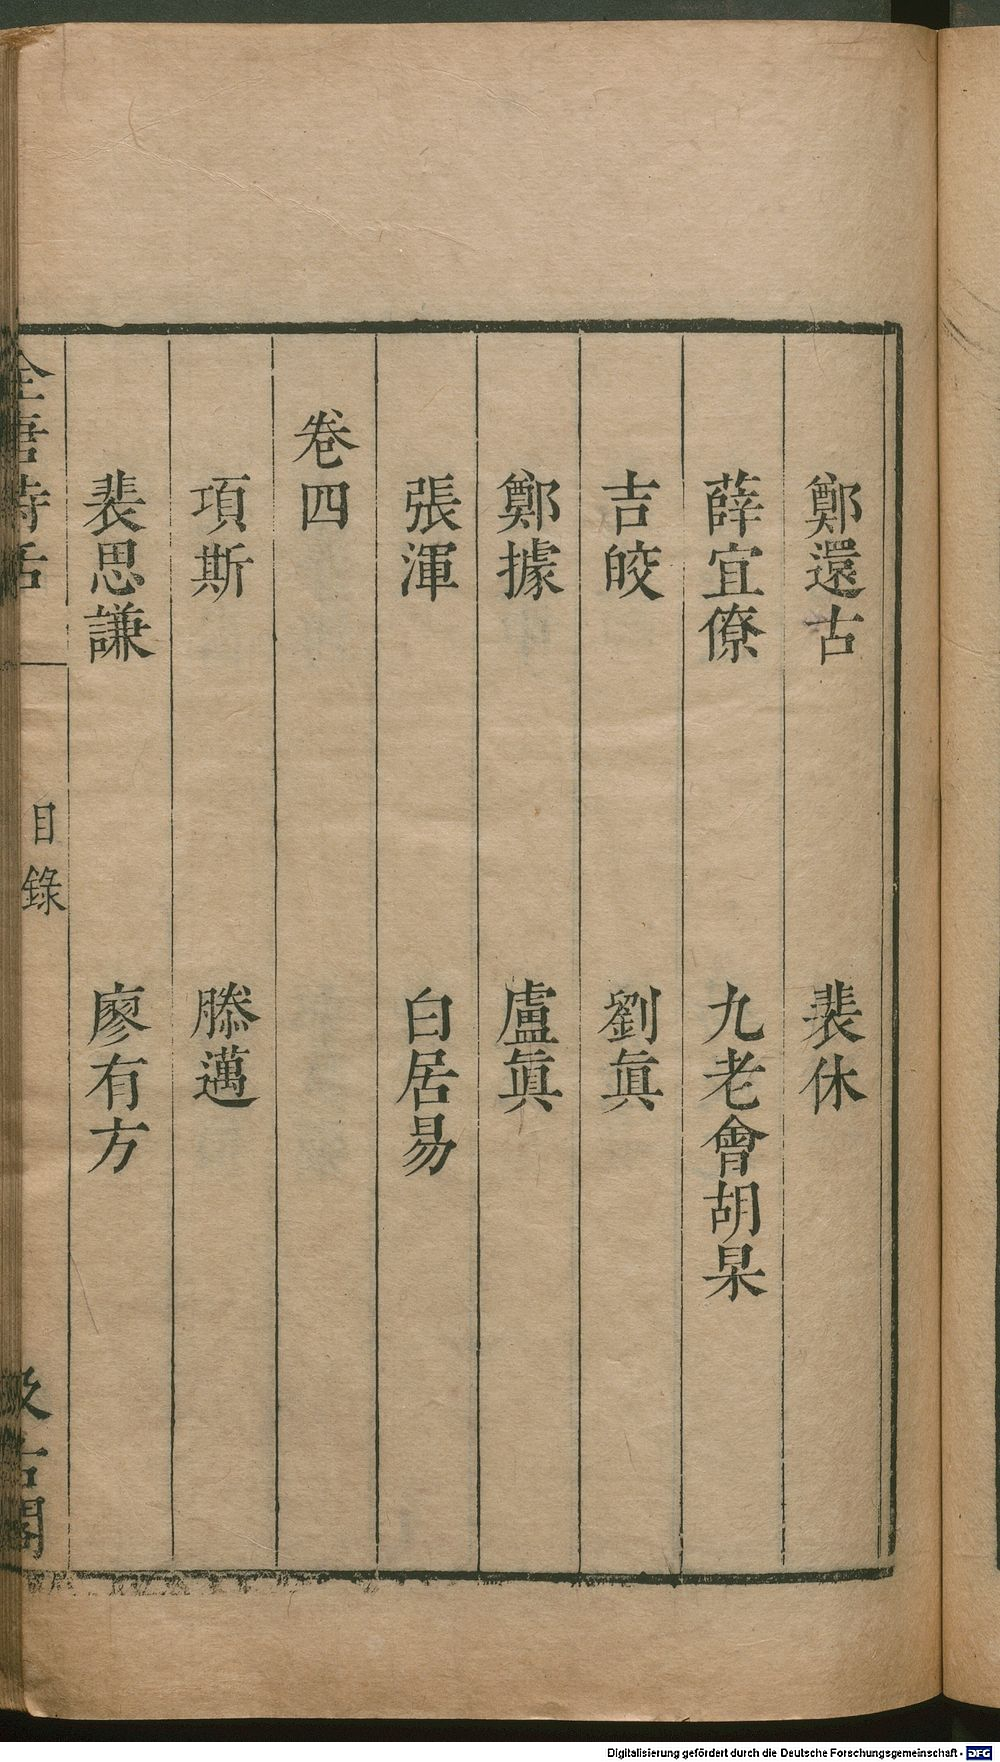 鄭還古 裴休
薛宜僚 九老會胡杲
吉皎 劉眞
鄭據 盧眞
張渾 白居易
卷四
項斯 滕邁
裴思謙 廖有方
全唐詩話 目錄 汲古閣
Digitalisierung gefördert durch die Deutsche Forschungsgemeinschaft - DFG